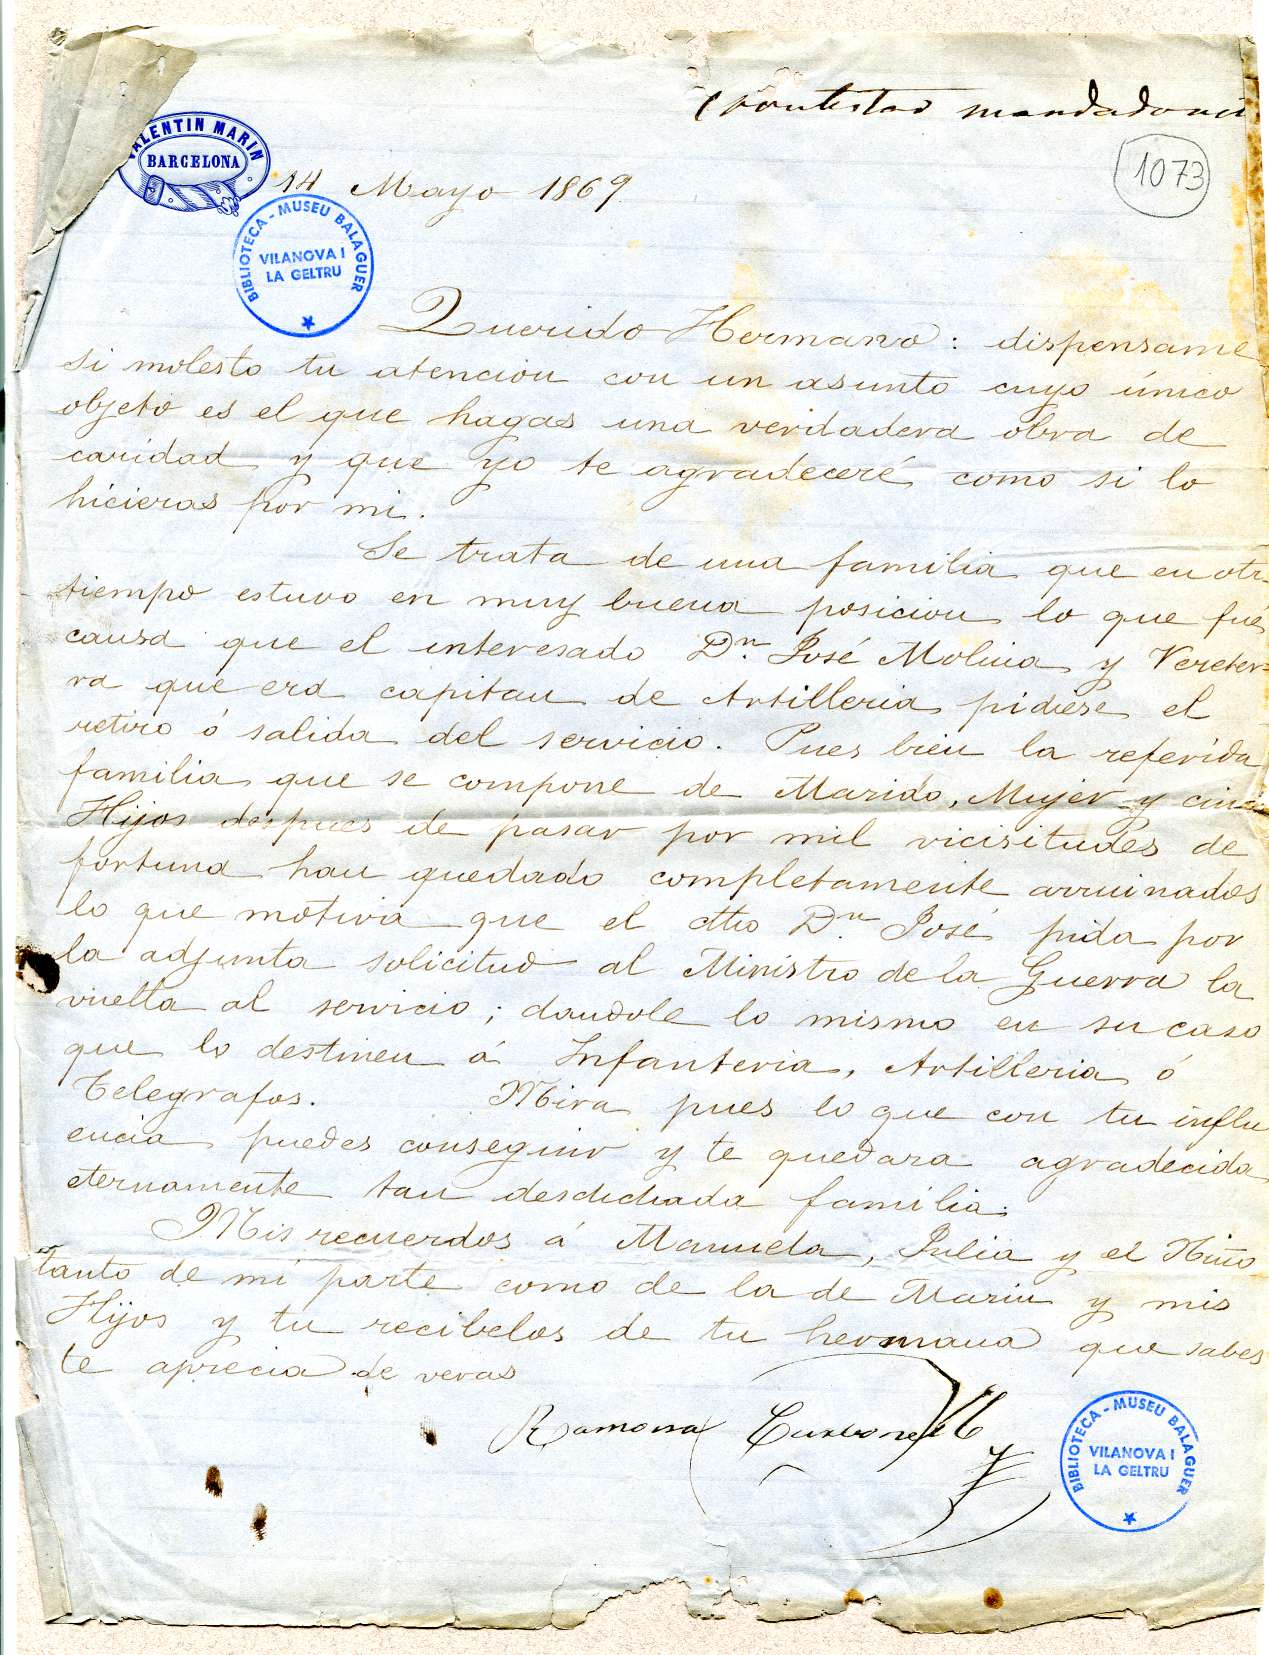 Contestad mandado
VALENTIN MARIN
BARCELONA
1073
14 Mayo 1869
BIBLIOTECA - MUSEU BALAGUER
VILANOVA I
LA GELTRU
Querido Hermano: dispensame
si molesto tu atencion con un asunto cuyo único
objeto es el que hagas una verdadera obra de
caridad y que yo te agradeceré como si lo
hicieras por mi.
Se trata de una familia que en otr
tiempo estuvo en muy buena posicion lo que fué
causa que el interesado Dn. José Molina y Vereter-
ra que era capitan de Artilleria pidiese el
retiro ó salida del servicio. Pues bien la referida
familia que se compone de Marido, Mujer y cinc
Hijos despues de pasar por mil vicisitudes de
fortuna han quedado completamente arruinados
lo que motiva que el dho Dn. José pida por
la adjunta solicitud al Ministro de la Guerra la
vuelta al servicio; dandole lo mismo en su caso
que lo destinen á Infanteria, Artilleria ó
Telegrafos. Mira pues lo que con tu influ
encia puedes conseguir y te quedara agradecida
eternamente tan desdichada familia.
Mis recuerdos á Manuela, Julia y el Niño
tanto de mi parte como de la de Marin y mis
Hijos y tu recibelos de tu hermana que sabes
te aprecia de veras
Ramona Carbonell
BIBLIOTECA - MUSEU BALAGUER
VILANOVA I
LA GELTRU